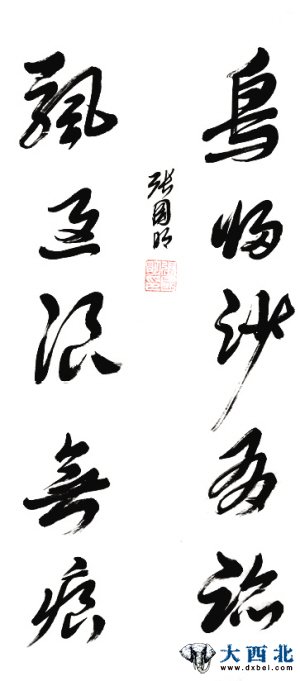 鳥歸沙有跡
颿過浪無痕
張國明
大西北
www.dxbei.com